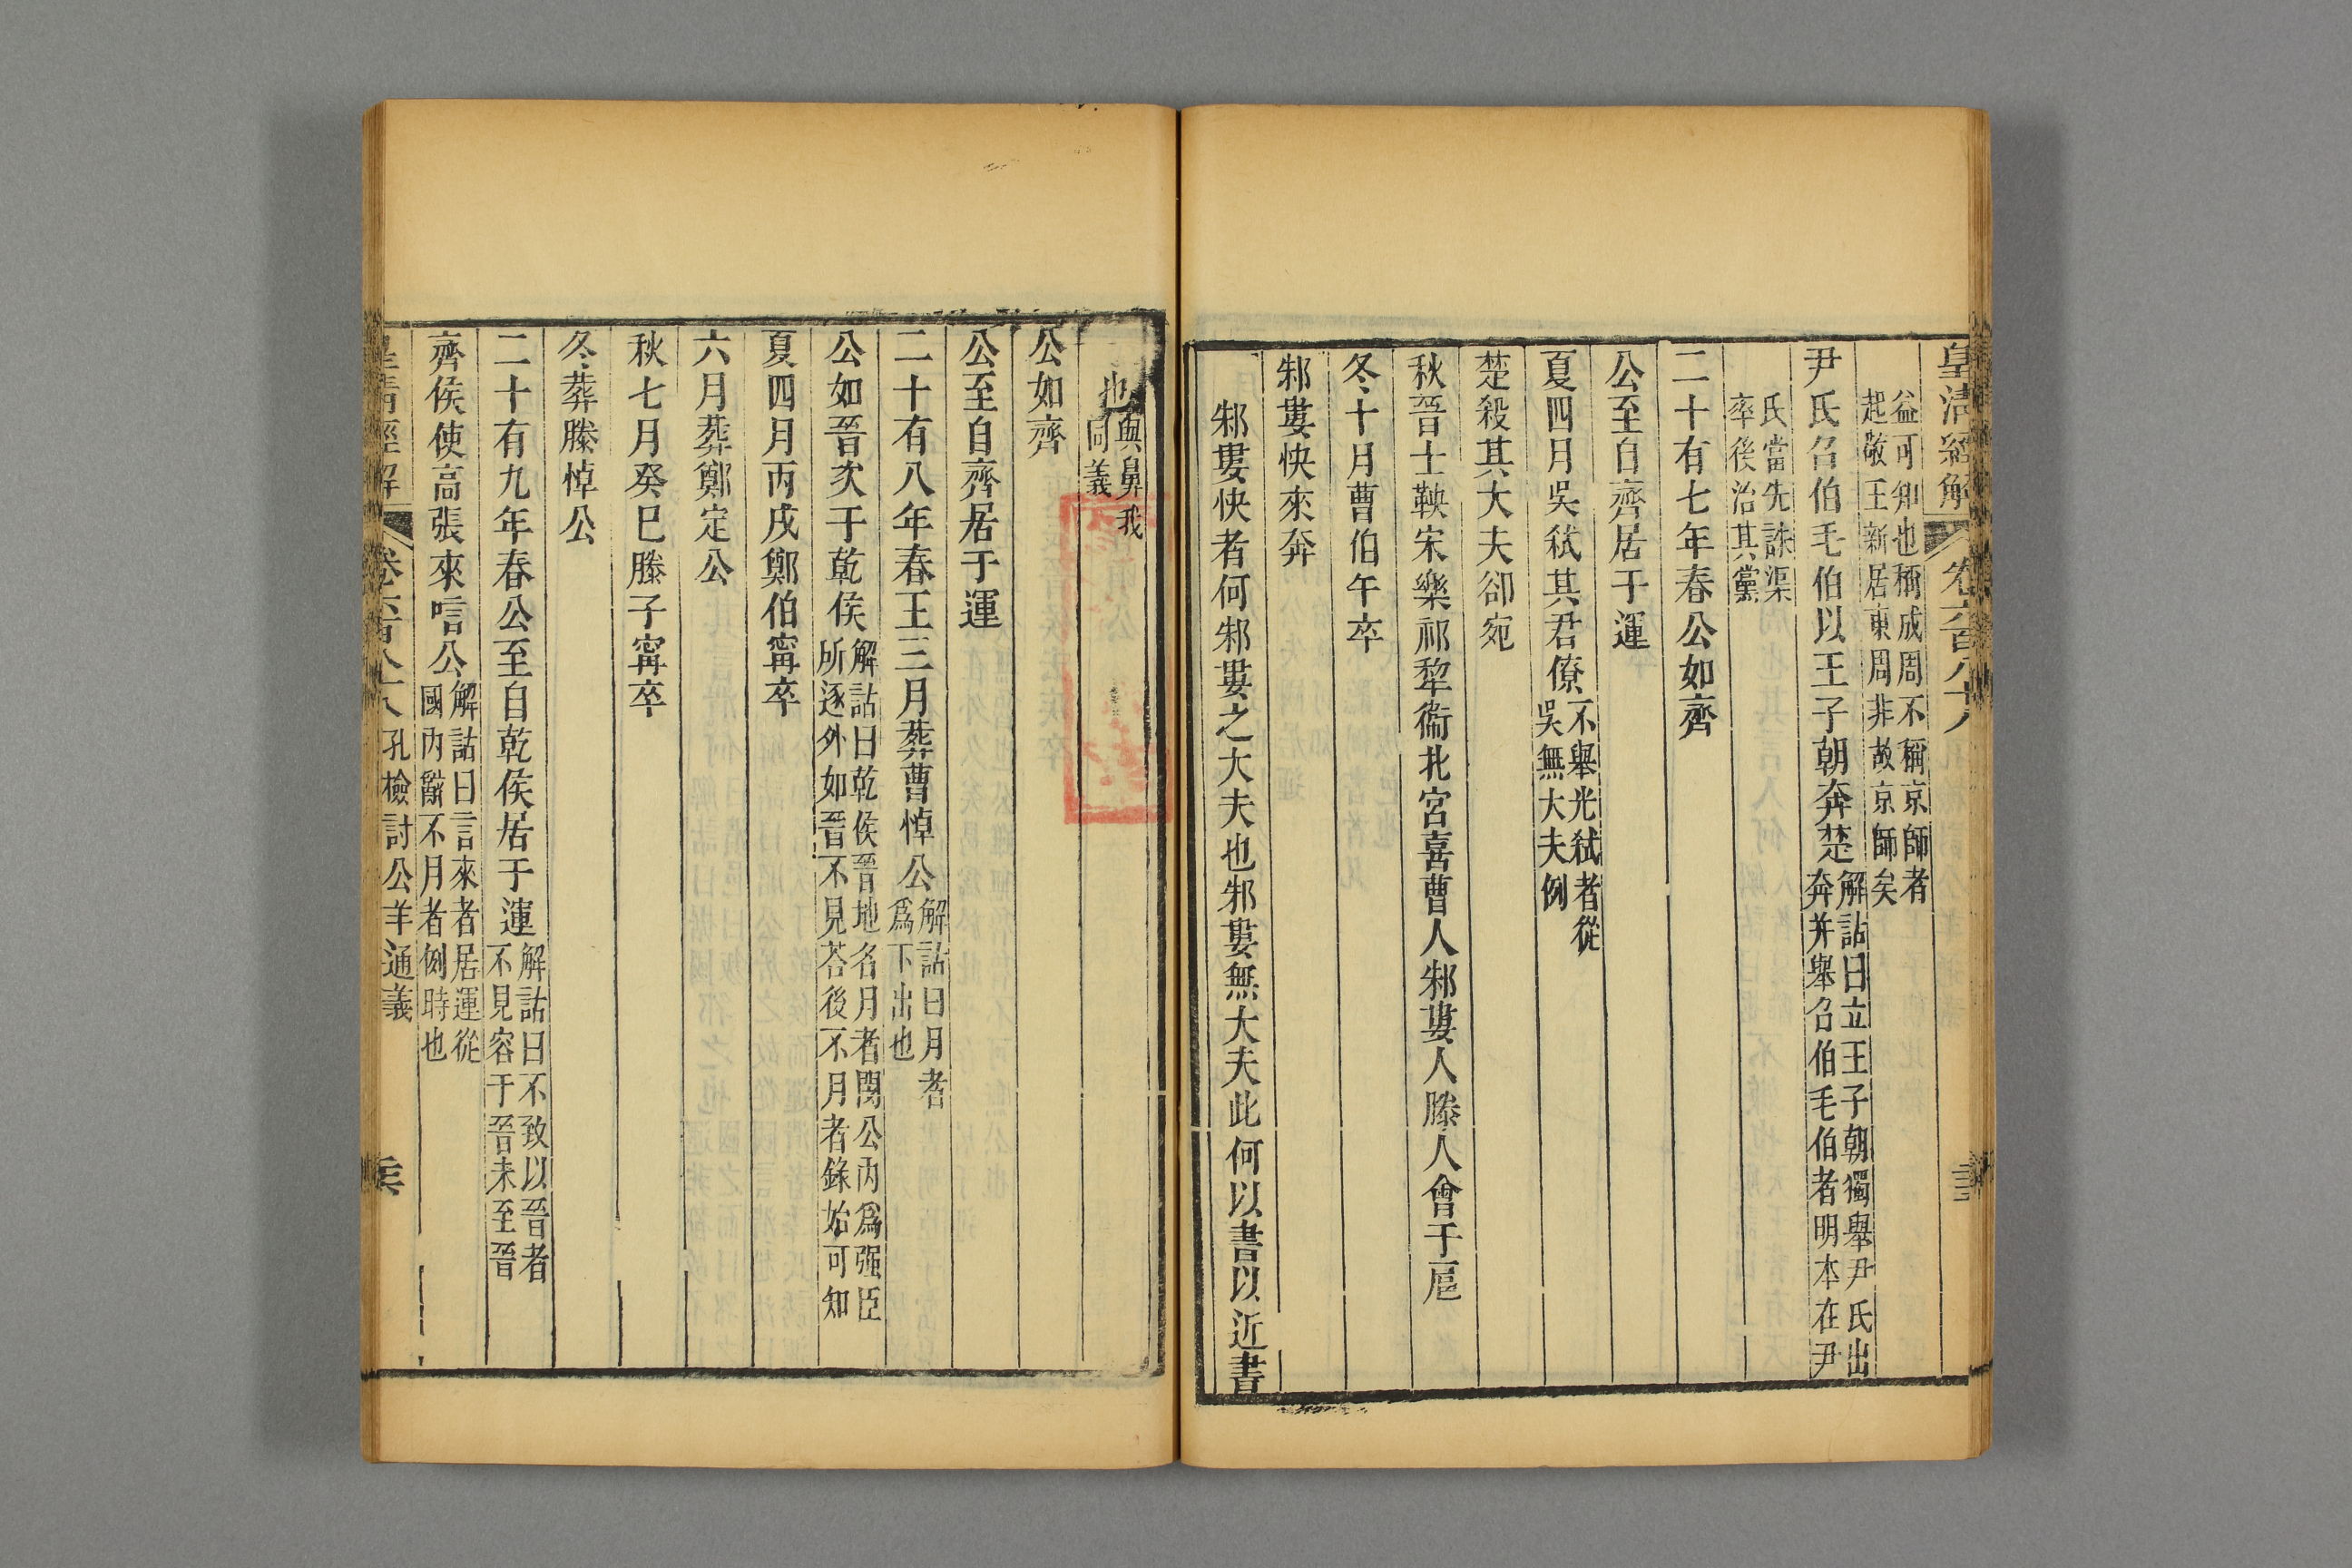 皇清經解 卷六百八十八
益可知也稱成周不稱京師者
起敬王新居東周非故京師矣
尹氏召伯毛伯以王子朝奔楚
解詁曰立王子朝獨舉尹氏出
奔并舉召伯毛伯者明本在尹
氏當先誅渠
率後治其黨
二十有七年春公如齊
公至自齊居于運
夏四月吳弒其君僚
不舉光弒者從
吳無大夫例
楚殺其大夫郤宛
秋晉士鞅宋樂祁犂衞北宮喜曹人邾婁人滕人會于扈
冬十月曹伯午卒
邾婁快來奔
邾婁快者何邾婁之大夫也邾婁無大夫此何以書以近書
也
與鼻我
同義
公如齊
公至自齊居于運
二十有八年春王三月葬曹悼公
解詁曰月者
爲下出也
公如晉次于乾侯
解詁曰乾侯晉地名月者閔公內爲强臣
所逐外如晉不見荅後不月者錄始可知
夏四月丙戌鄭伯甯卒
六月葬鄭定公
秋七月癸巳滕子甯卒
冬葬滕悼公
二十有九年春公至自乾侯居于運
解詁曰不致以晉者
不見容于晉未至晉
齊侯使高張來唁公
解詁曰言來者居運從
國內辭不月者例時也
皇清經解 卷六百八十八 孔檢討公羊通義